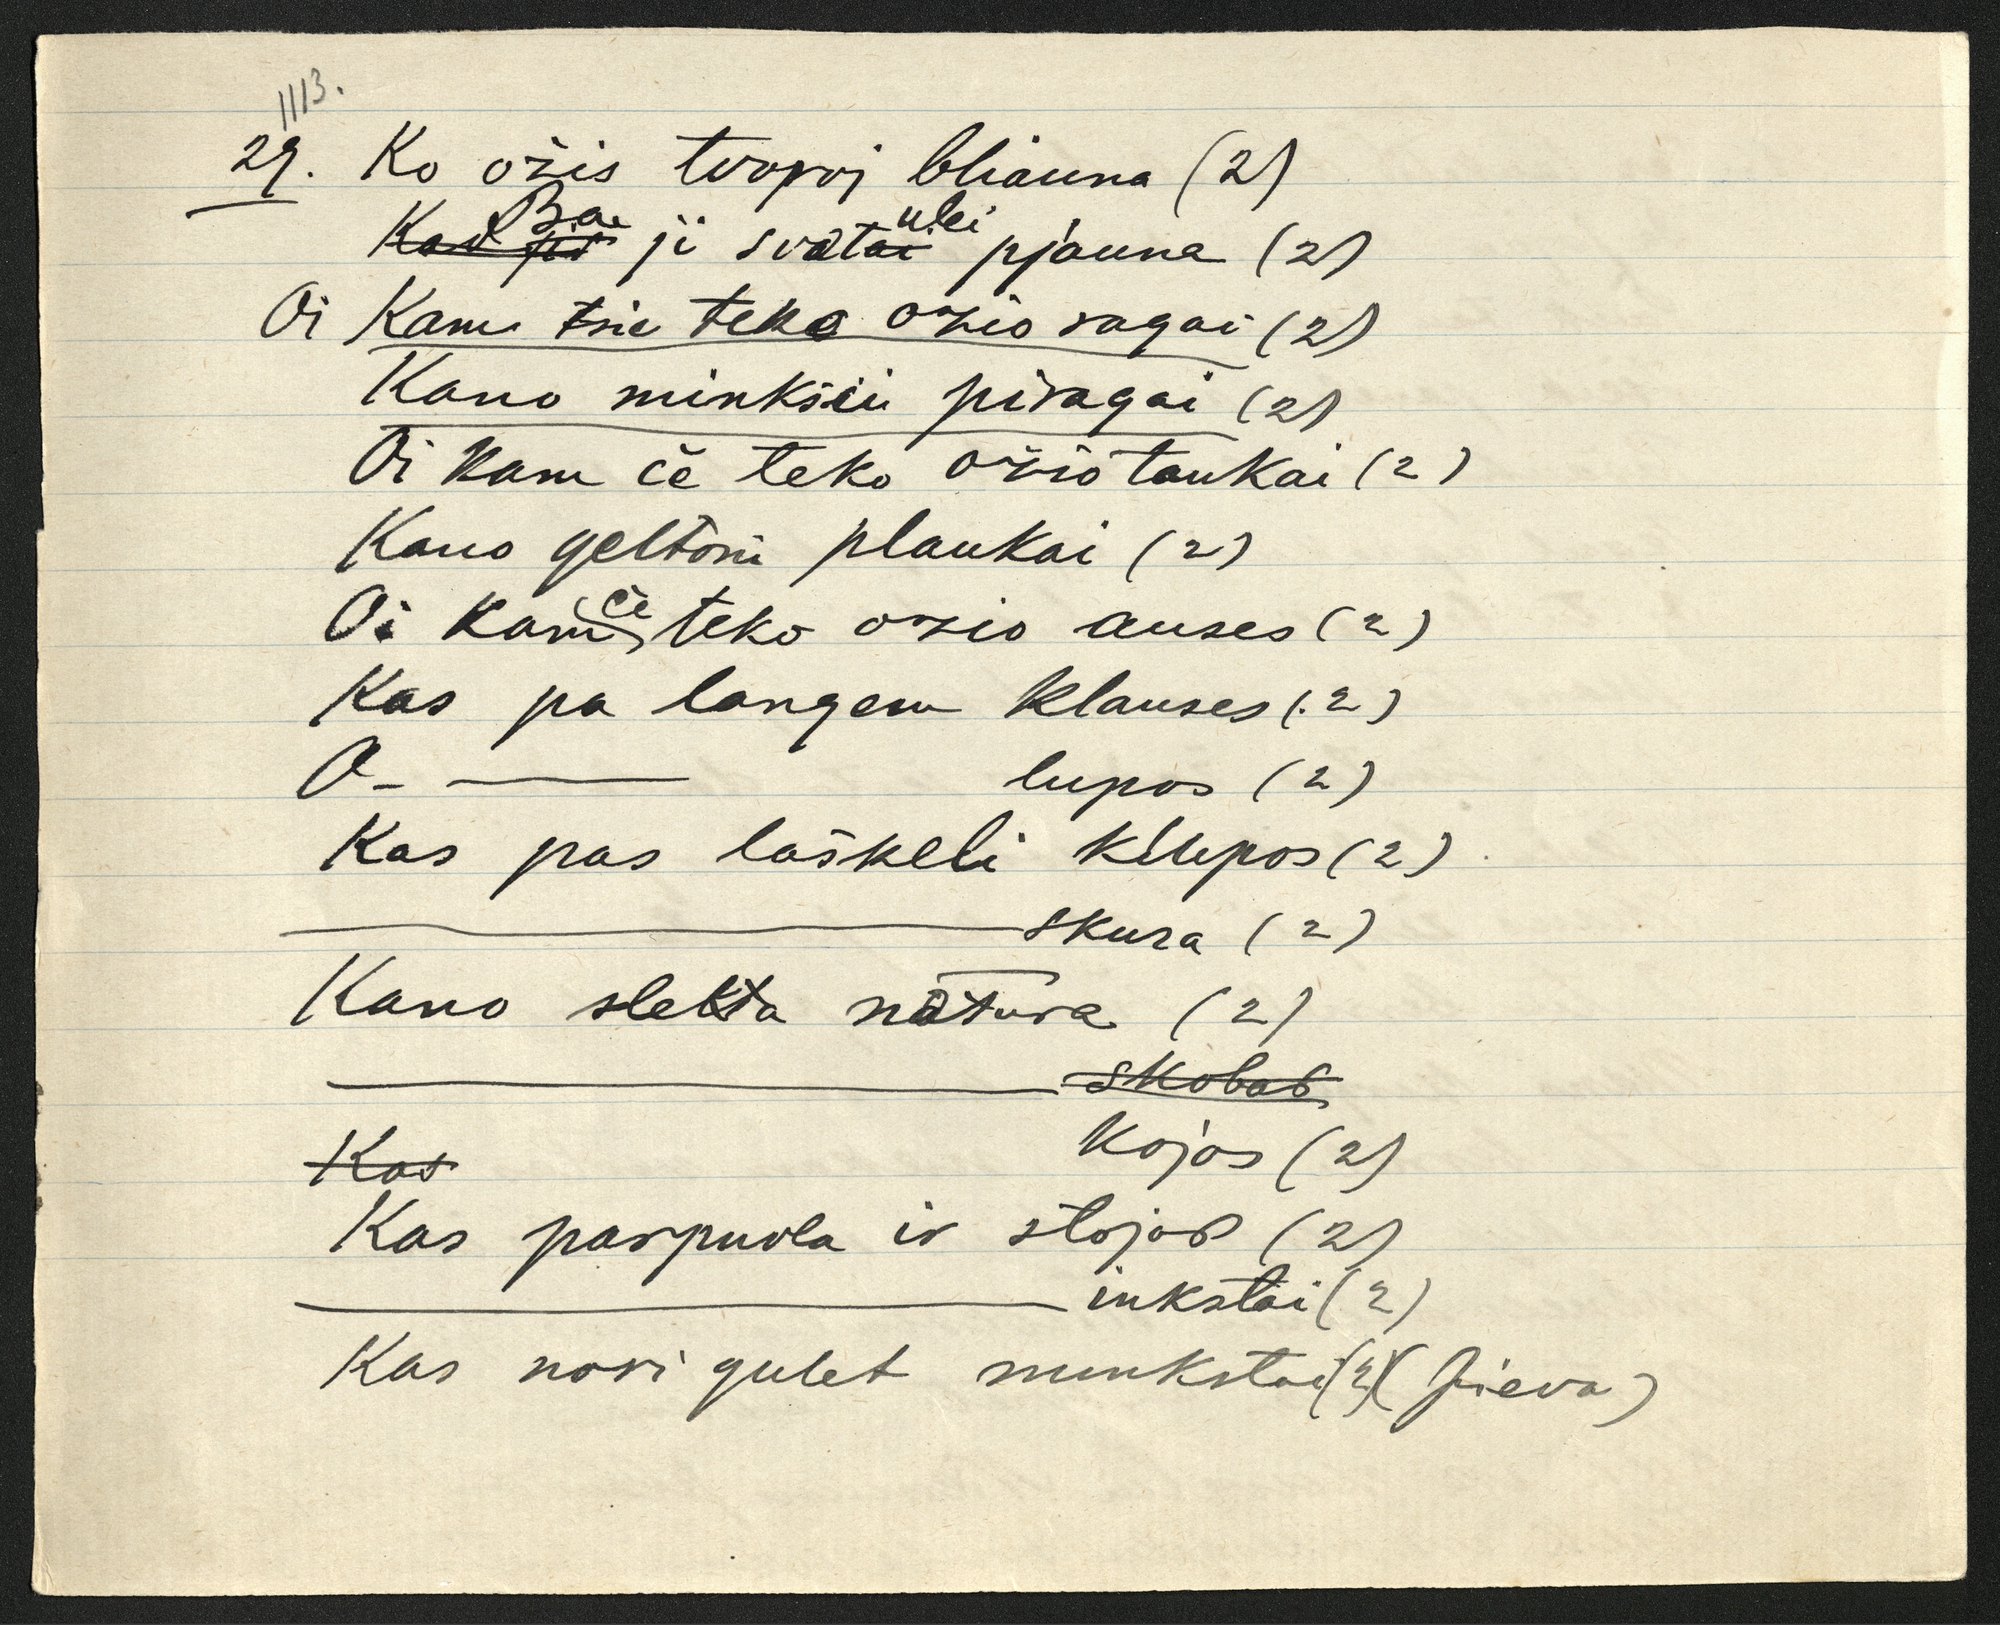 1113.
29. Ko ožis tvoroj bliauna (2)
Kad jis Ba ji svotai ulei pjauna (2)
Oi Kam tsie teko ozio ragai (2)
Kano minkšti piragai (2)
Oi Kam če teko ožio taukai (2)
Kano geltoni plaukai (2)
Oi Kam če teko ozio auses (2)
Kas pa langem klauses (2)
O- —— lupos (2)
Kas pas laškeli klupos (2)
—— skura (2)
Kano slekta natura (2)
—— skobos
Kojos (2)
Kas
Kas parpuola ir stojos (2)
—— inkstai (2)
Kas nori gulet minkstai (2) (Pieva)